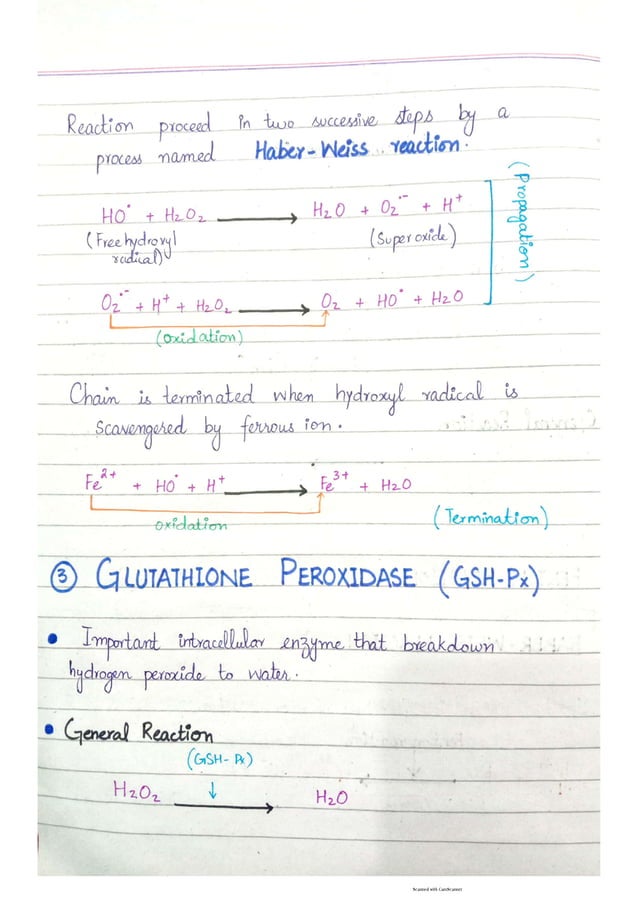 Reaction proceed in two successive steps by a
process named Haber-Weiss reaction.
HO• + H2O2 ⟶ H2O + O2•⁻ + H⁺
(Free hydroxyl
radical)
(Superoxide)
(Propagation)
O2•⁻ + H⁺ + H2O2 ⟶ O2 + HO• + H2O
(oxidation)
Chain is terminated when hydroxyl radical is
scavengered by ferrous ion.
Fe²⁺ + HO• + H⁺ ⟶ Fe³⁺ + H2O
oxidation
(Termination)
③ GLUTATHIONE PEROXIDASE (GSH-Px)
• Important intracellular enzyme that breakdown
hydrogen peroxide to water.
• General Reaction
(GSH-Px)
H2O2 ⟶ H2O
Scanned with CamScanner